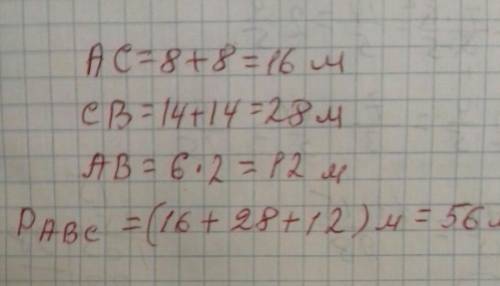 AC=8+8=16 м
CB=14+14=28 м
AB=6·2=12 м
PABC=(16+28+12) м=56 м